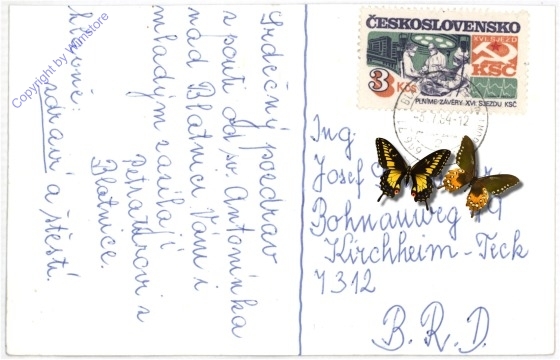 Srdečný pozdrav
z pouti od sv. Antonínka
nad Blatnicí Vám i
mladým zasílají
Petrážovi z
Blatnice.
hlavně:
zdraví a štěstí.
Copyright by Wumstore
ČESKOSLOVENSKO
XVI. SJEZD
KSČ
3 Kčs
PLNÍME ZÁVĚRY XVI. SJEZDU KSČ
Ing.
Josef
Bohnauweg 19
Kirchheim-Teck
7312
B.R.D.